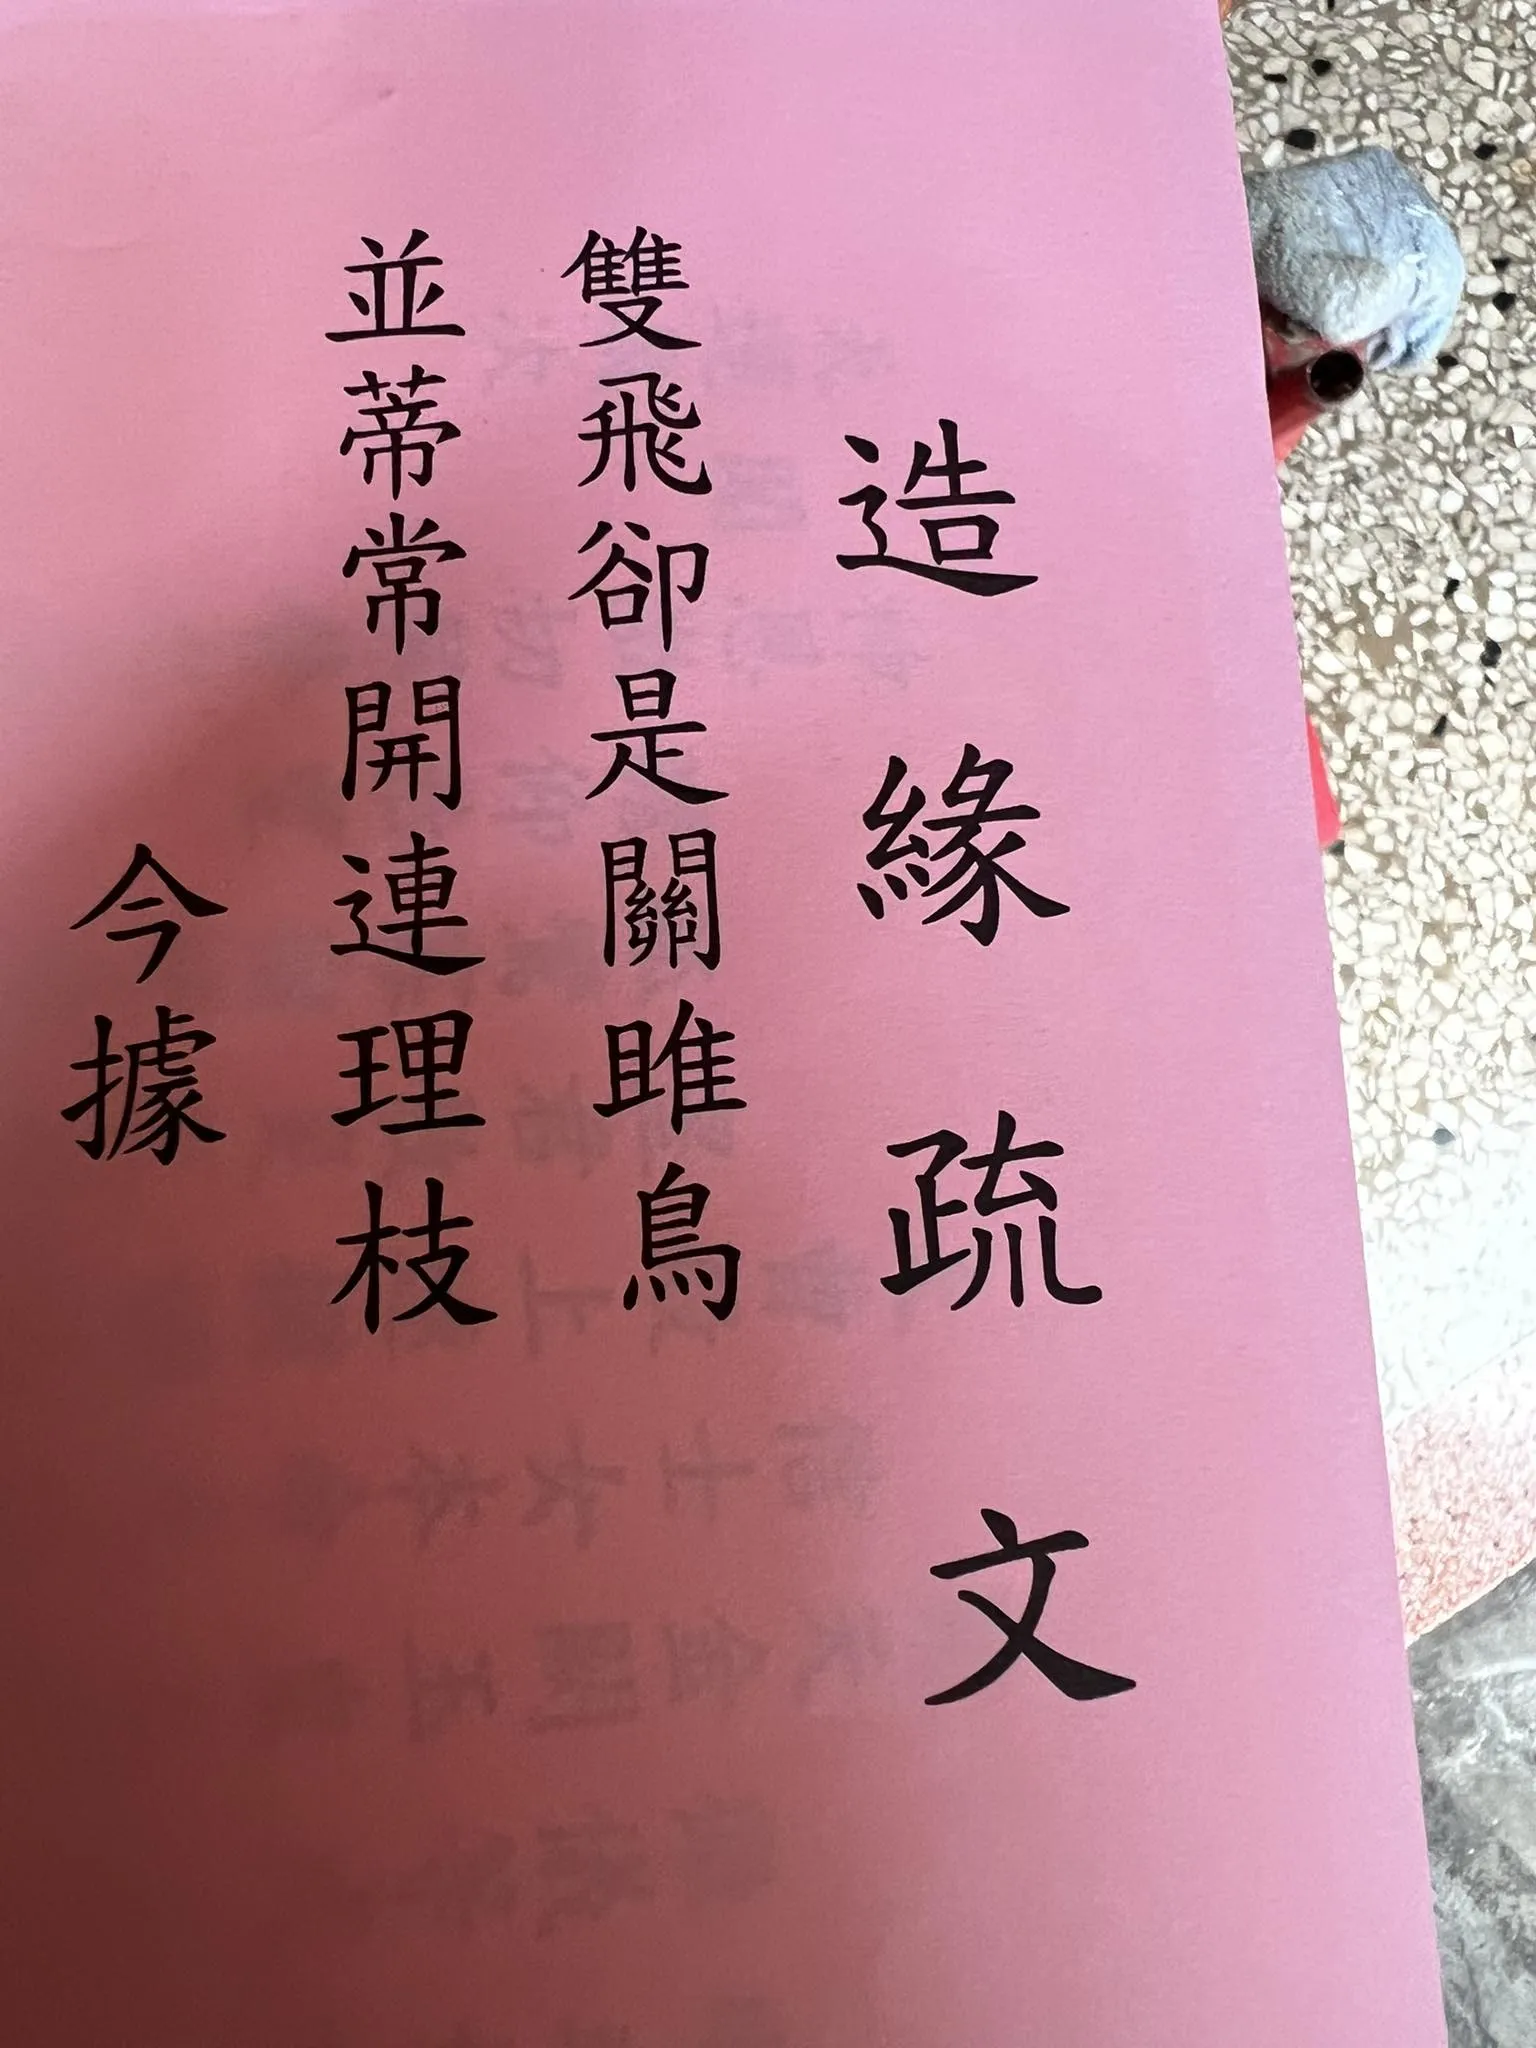 造緣疏文
雙飛卻是關雎鳥
並蒂常開連理枝
今據